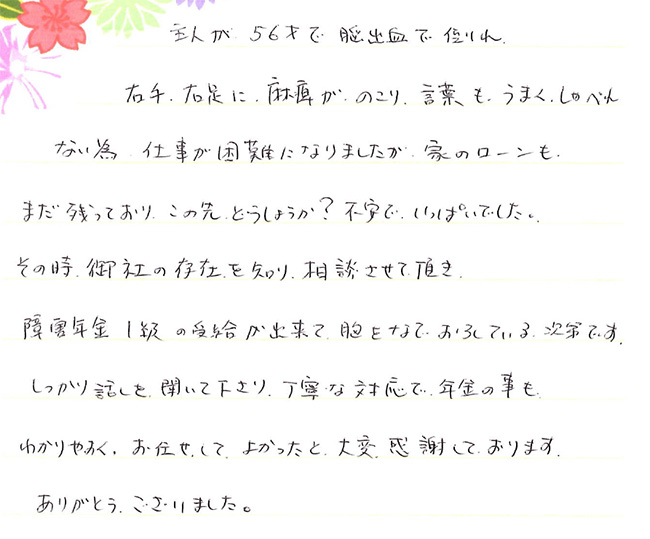 主人が 56才で 脳出血で 倒れ、
右手、右足に、麻痺が、のこり、言葉、も、うまく、しゃべれ
ない為、仕事が困難になりましたが、家のローンも、
まだ 残っており、この先、どうしようか？不安で、いっぱいでした。
その時、御社の存在、を知り、相談させて頂き、
障害年金 1級 の受給が出来て、胸をなでおろしている、次第です。
しっかり話しを、聞いて下さり、丁寧な対応で、年金の事も、
わかりやすく、お任せして、よかったと、大変、感謝して、おります。
ありがとう、ございました。